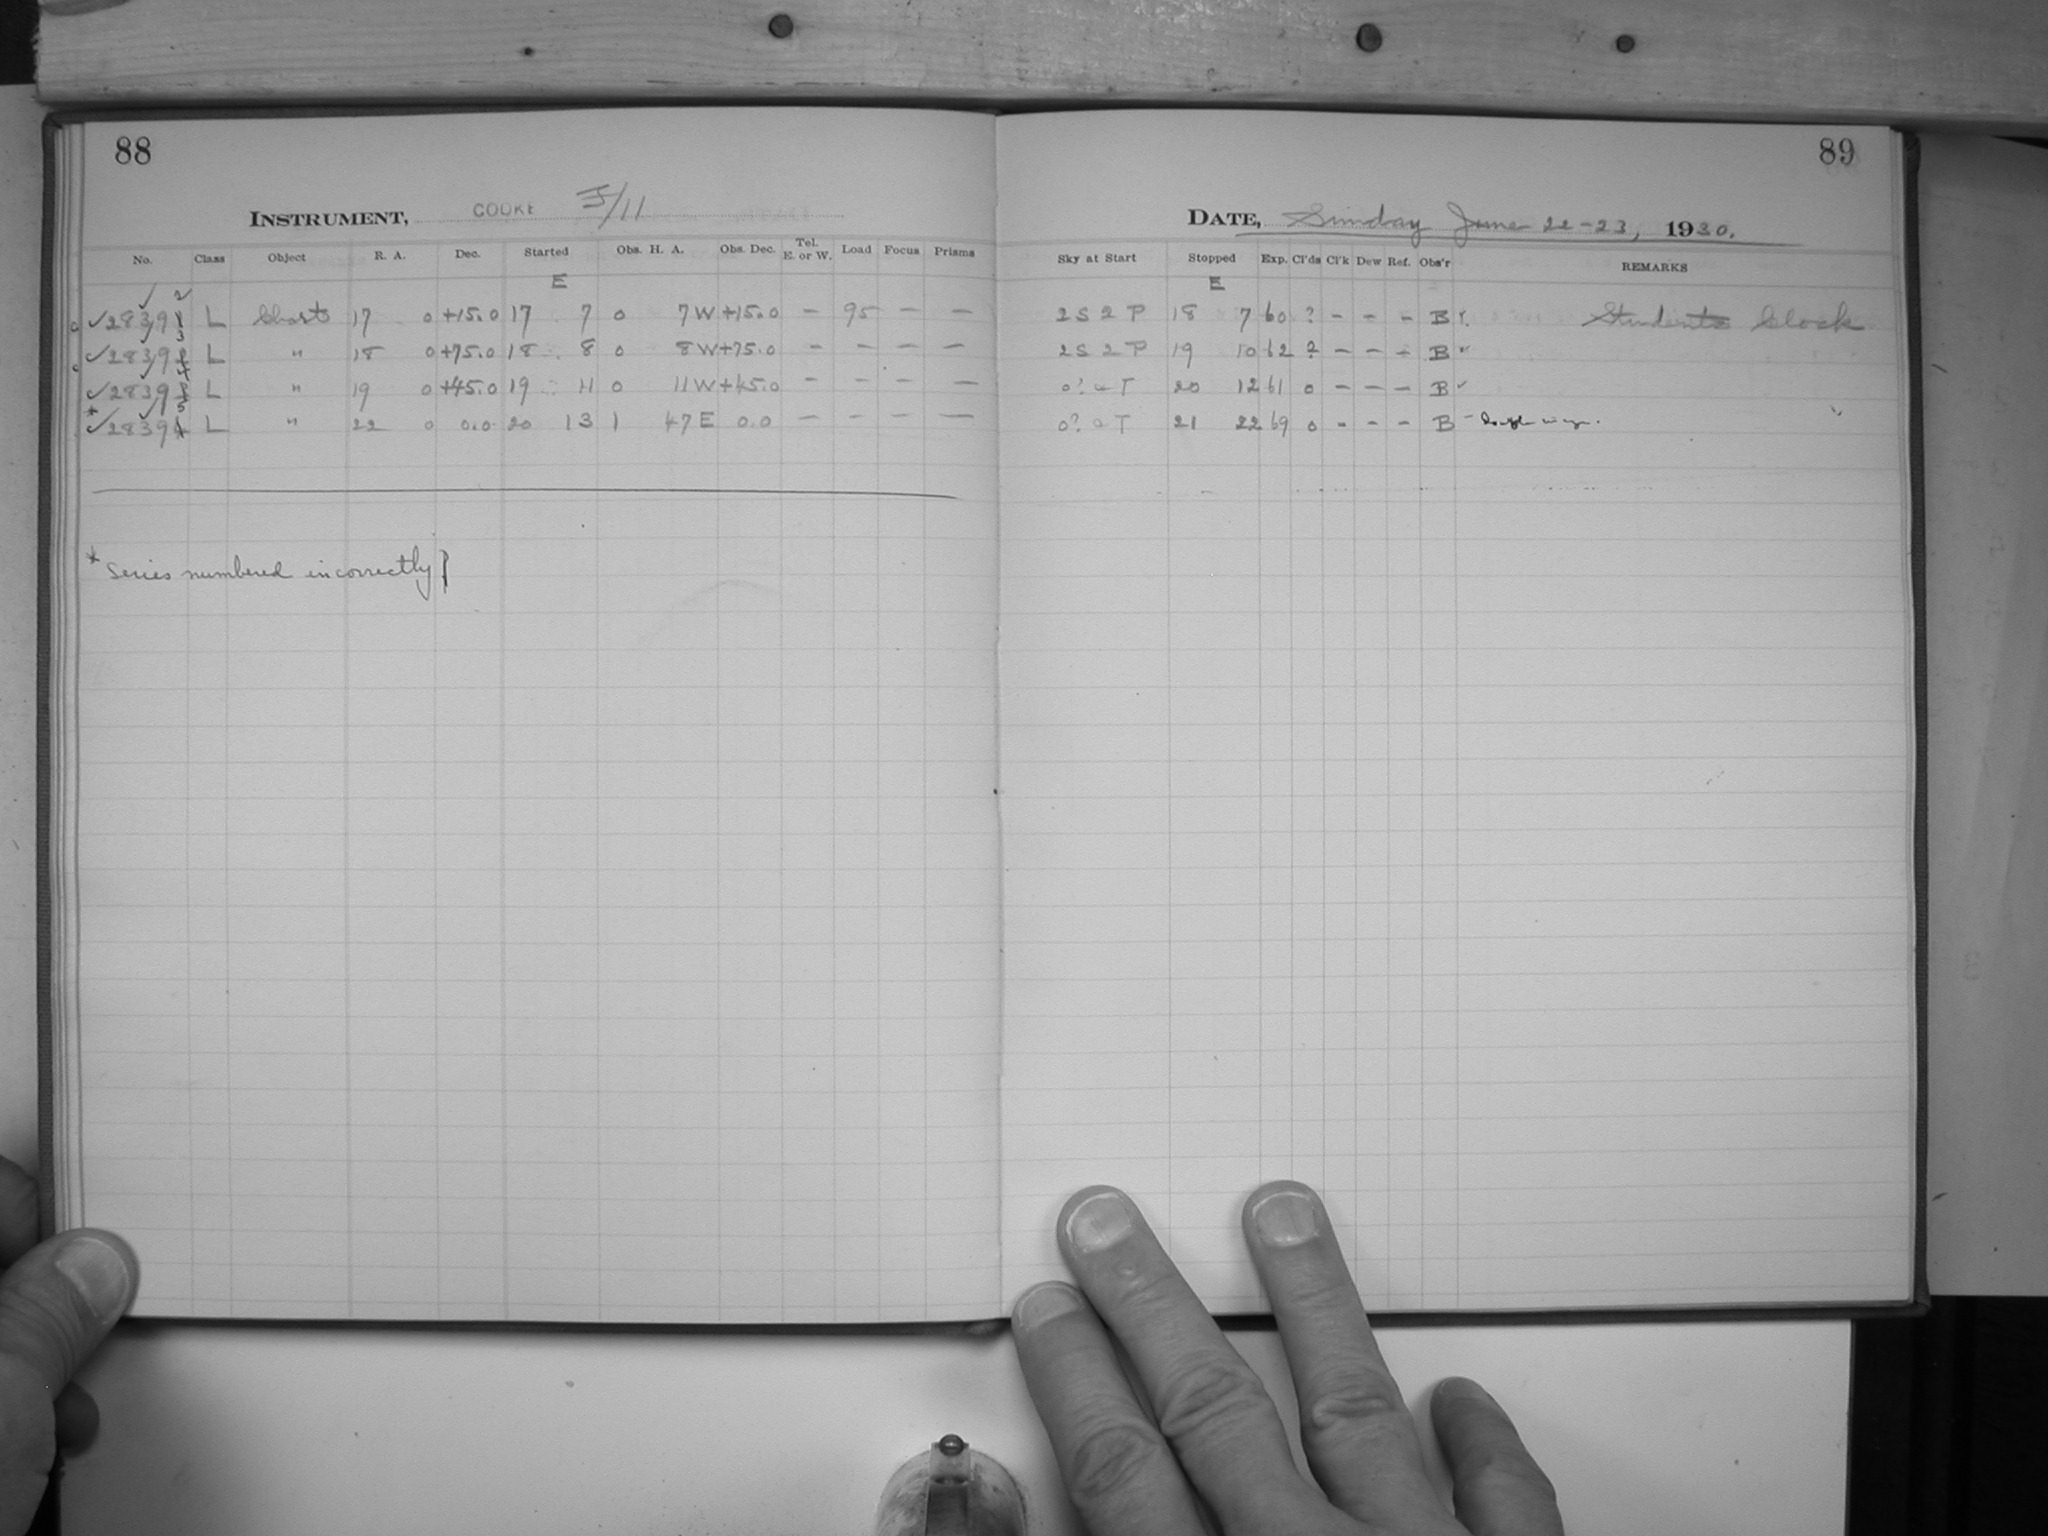 88
INSTRUMENT, COOKE
No. Class Object R. A. Dec. Started Obs. H. A. Obs. Dec. Tel. E. or W. Load Focus Prisms
E
2
✓28391 L Charts 17 0 +15.0 17 7 0 7 W +15.0 – 95 – –
3
✓28392 L " 18 0 +75.0 18 8 0 8 W +75.0 – – – –
4
✓28393 L " 19 0 +45.0 19 11 0 11 W +45.0 – – – –
5
* ✓28394 L " 22 0 0.0 20 13 1 47 E 0.0 – – – –
* Series numbered incorrectly
89
DATE, Sunday June 22-23, 1930.
Sky at Start Stopped Exp. Cl'ds Cl'k Dew Ref. Obs'r REMARKS
E
2 S 2 P 18 7 60 ? – – – B Students clock
2 S 2 P 19 10 62 2 – – – B ✓
0? a T 20 12 61 0 – – – B ✓
0? a T 21 22 69 0 – – – B –